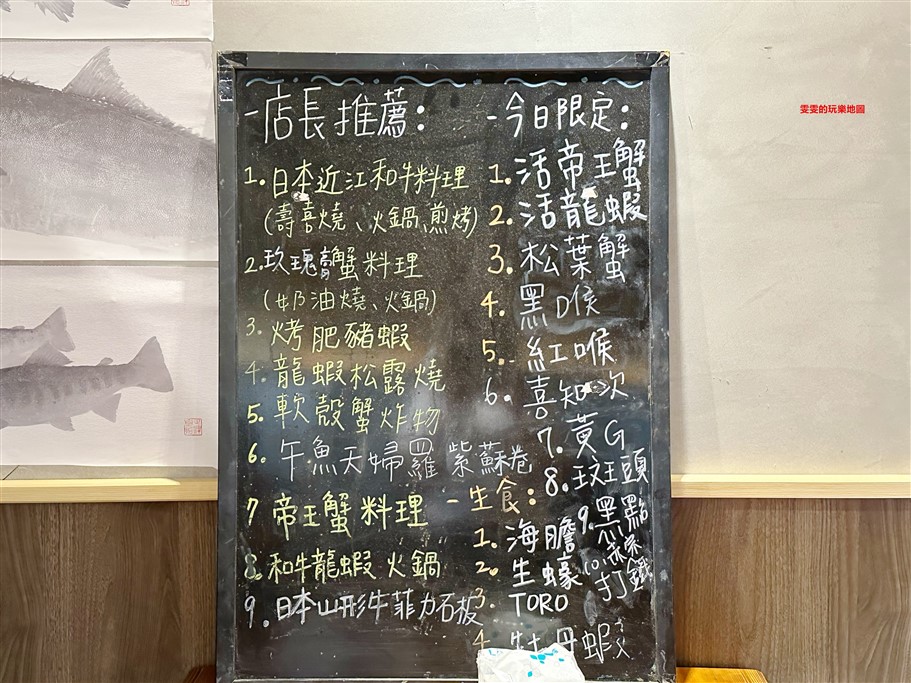 -店長推薦:
1.日本近江和牛料理
(壽喜燒、火鍋、煎烤)
2.玫瑰醬蟹料理
(奶油燒、火鍋)
3.烤肥豬蝦
4.龍蝦松露燒
5.軟殼蟹炸物
6.午魚天婦羅 紫蘇卷
7 帝王蟹料理
8.和牛龍蝦火鍋
9.日本山形牛菲力石板
-今日限定:
1.活帝王蟹
2.活龍蝦
3.松葉蟹
4.黑喉
5.紅喉
6.喜知次
7.黃G
8.斑頭
9.黑點
10.赤宗
打鐵
-生食:
1.海膽
2.生蠔
3.TORO
4 牡丹蝦
雯雯的玩樂地圖